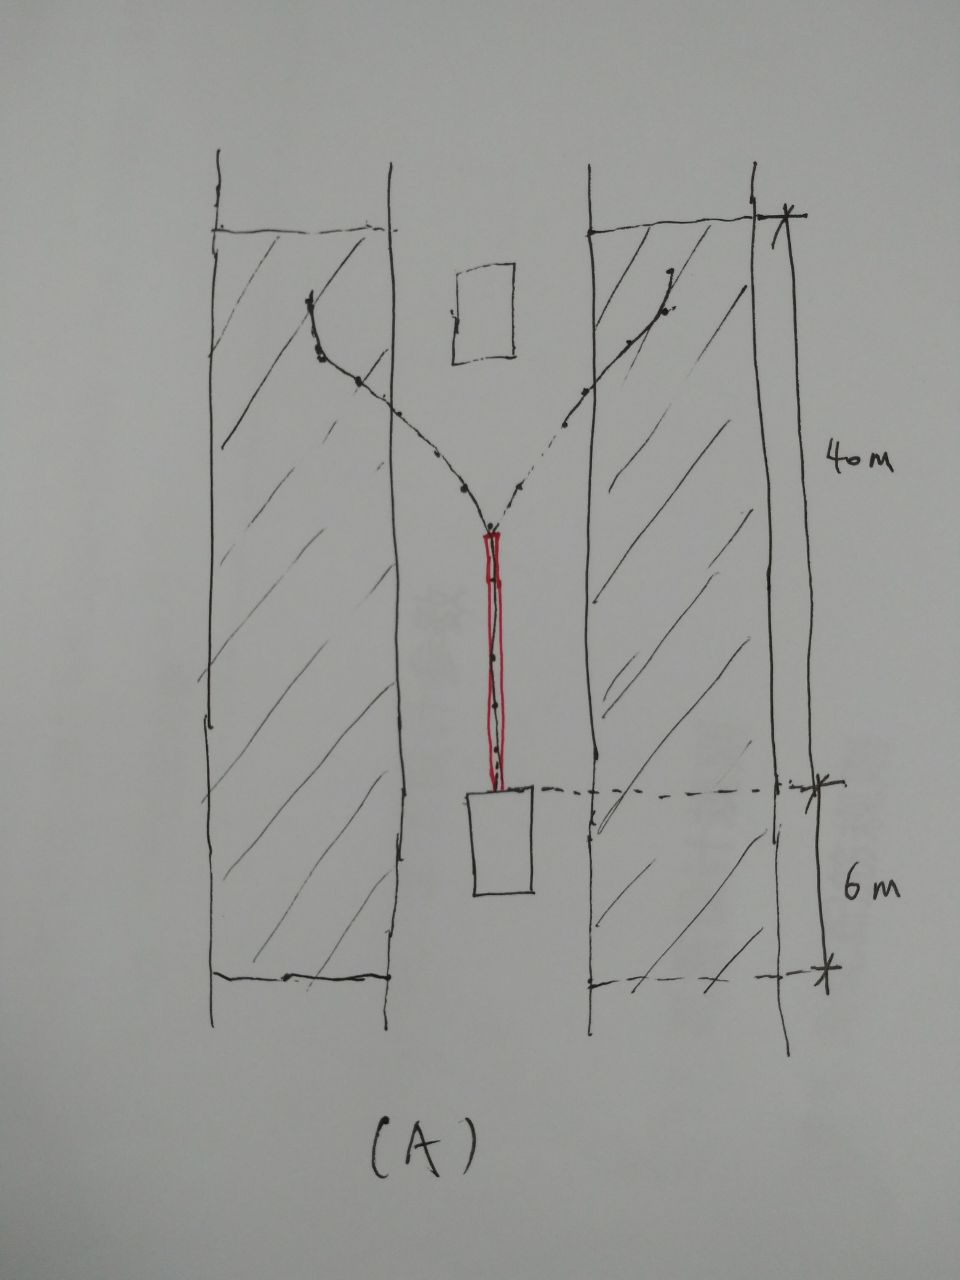 40m
6m
(A)